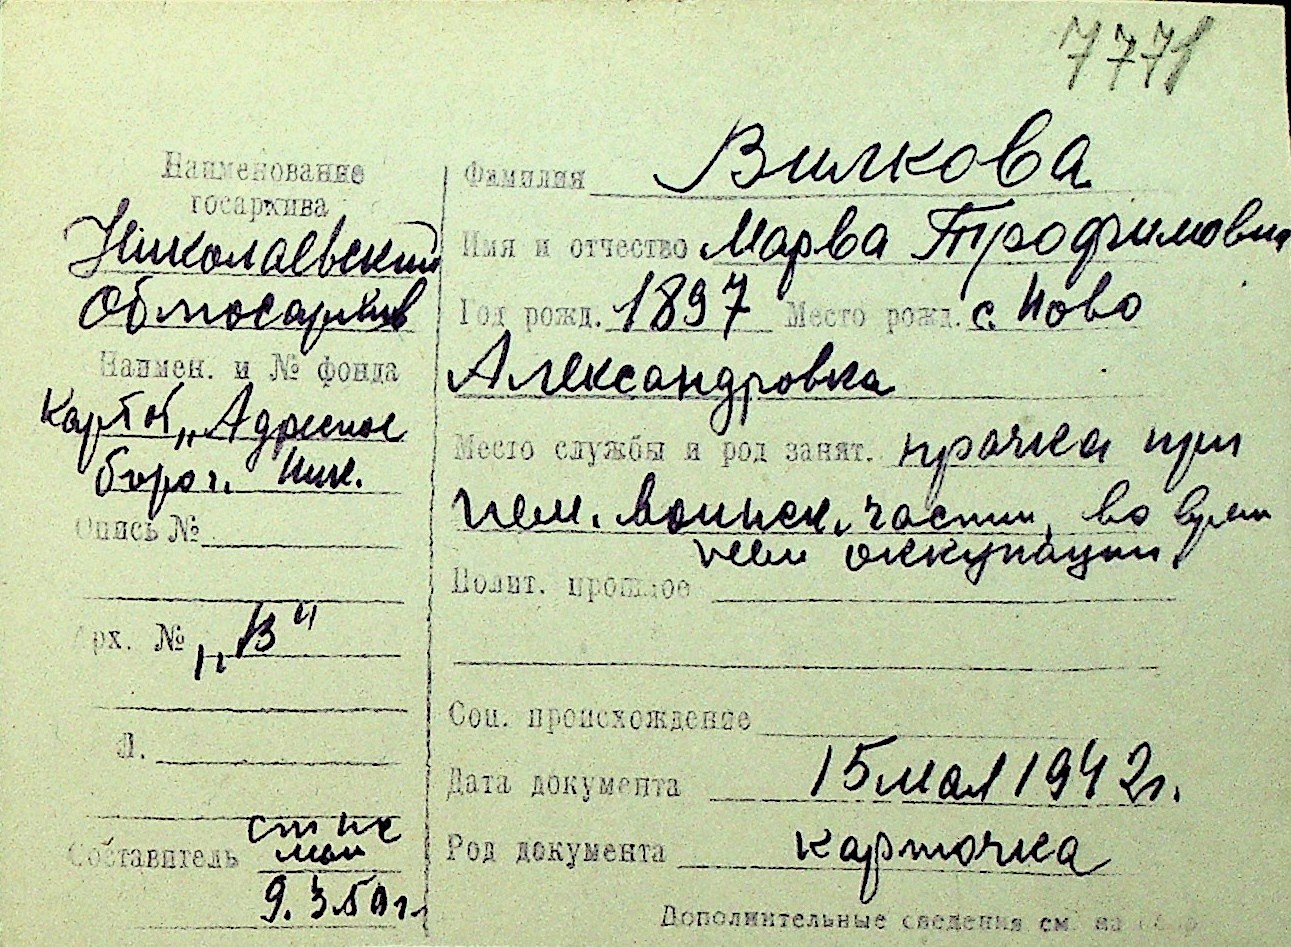 7771
Наименование
госархива
Николаевский
Облгосархив
Наимен. и № фонда
Карт. "Адресное
бюро г. Ник.
Опись №
Арх. № "В"
Л.
Составитель
9.3.50 г.
Фамилия Вилкова
Имя и отчество Марва Трофимовна
Год рожд. 1897 Место рожд. с. Ново
Александровка
Место службы и род занят. прачка при
нем. воинск. части, во врем
нем оккупации
Полит. прошлое
Соц. происхождение
Дата документа 15 мая 1942 г.
Род документа карточка
Дополнительные сведения см. на обор.